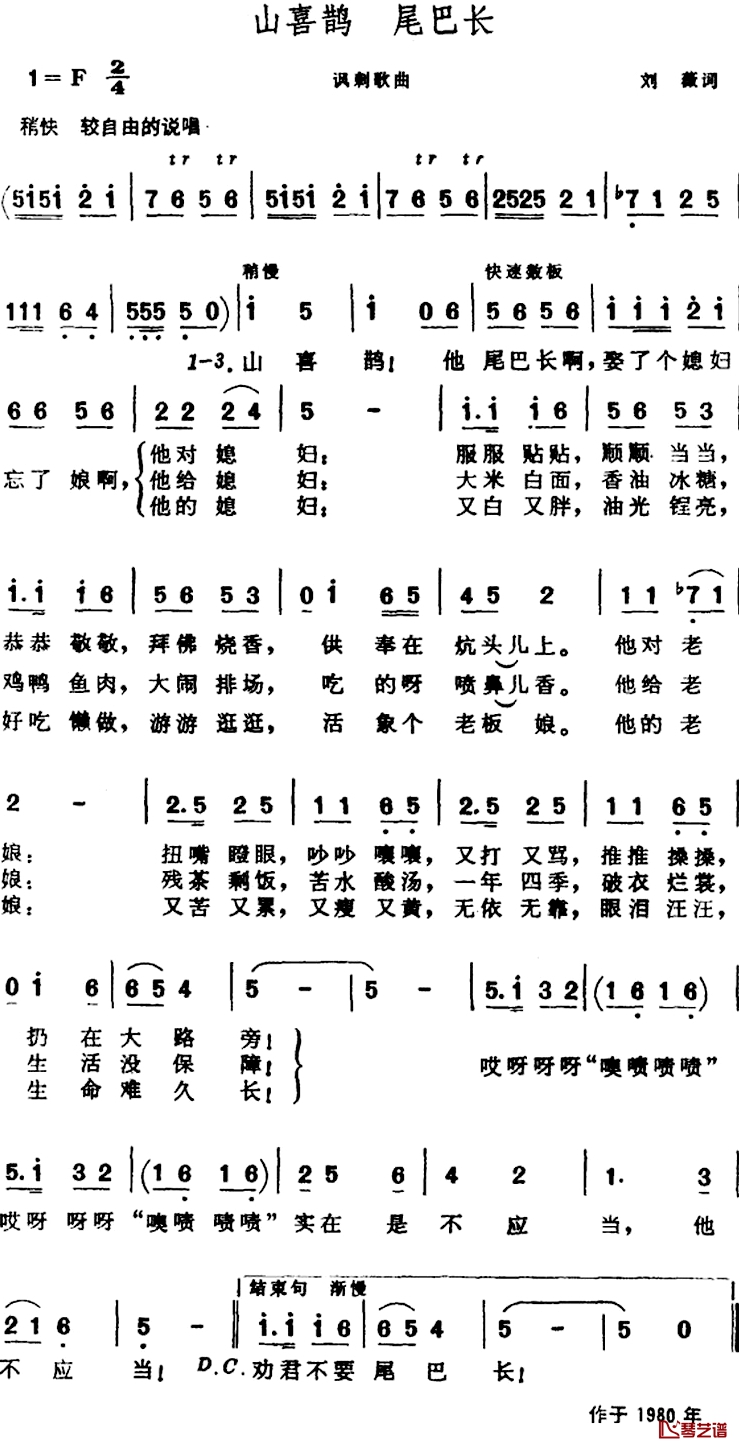 山喜鹊 尾巴长
1=F 2/4 讽刺歌曲 刘薇词
稍快 较自由的说唱
tr tr tr tr
(5i5i 2i | 76 56 | 5i5i 2i | 76 56 | 2525 21 | ♭71 25 |
稍慢 快速数板
111 64 | 555 50) | i 5 | i 06 | 56 56 | ii i2i |
1-3.山喜鹊!他尾巴长啊,娶了个媳妇
66 56 | 22 24 | 5 - | i.i i6 | 56 53 |
忘了娘啊,
他对媳妇:服服贴贴,顺顺当当,
他给媳妇:大米白面,香油冰糖,
他的媳妇:又白又胖,油光锃亮,
i.i i6 | 56 53 | 0i 65 | 45 2 | 11 ♭71 |
恭恭敬敬,拜佛烧香,供奉在炕头儿上。他对老
鸡鸭鱼肉,大闹排场,吃的呀喷鼻儿香。他给老
好吃懒做,游游逛逛,活象个老板娘。他的老
2 - | 2.5 25 | 11 65 | 2.5 25 | 11 65 |
娘:扭嘴瞪眼,吵吵嚷嚷,又打又骂,推推搡搡,
娘:残茶剩饭,苦水酸汤,一年四季,破衣烂裳,
娘:又苦又累,又瘦又黄,无依无靠,眼泪汪汪,
0i 6 | 65 4 | 5 - | 5 - | 5.i 32 | (16 16) |
扔在大路旁!
生活没保障!
生命难久长!
哎呀呀呀“噢啧啧啧”
5.i 32 | (16 16) | 25 6 | 4 2 | 1. 3 |
哎呀呀呀“噢啧啧啧”实在是不应当,他
结束句 渐慢
21 6 | 5 - || i.i i6 | 65 4 | 5 - | 5 0 ||
不应当!D.C.劝君不要尾巴长!
作于1980年
琴艺谱